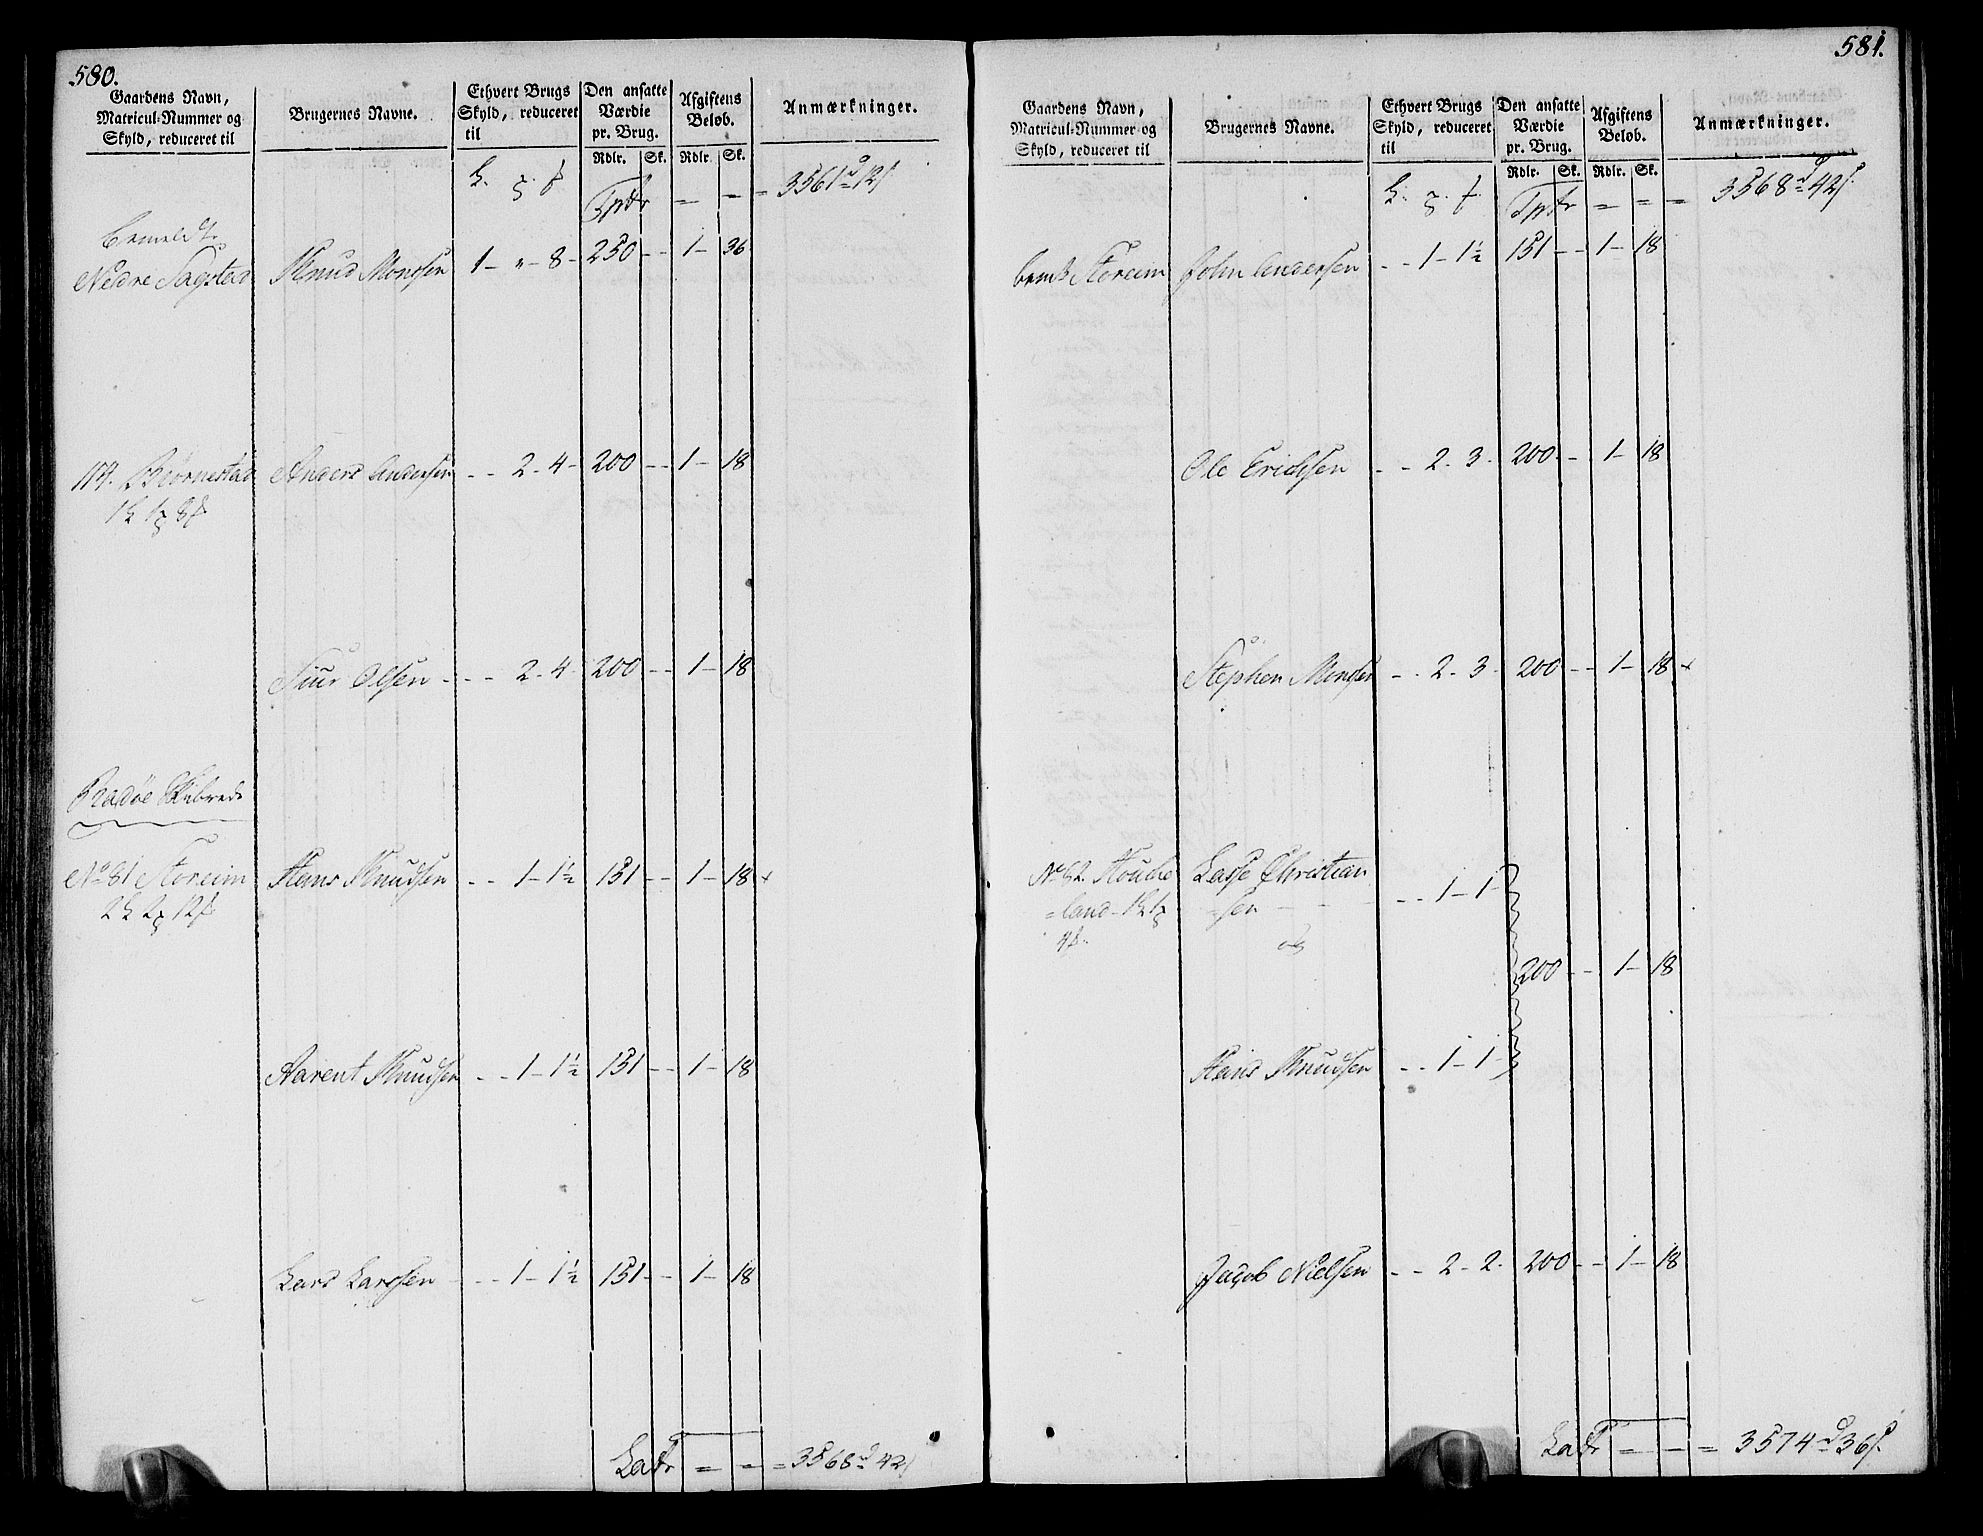 580.
Gaardens Navn, Matricul-Nummer og Skyld, reduceret til
Brugernes Navne.
Ethvert Brugs Skyld, reduceret til
Den ansatte Værdie pr. Brug.
Afgiftens Beløb.
Anmærkninger.
Rdlr. Sk. Rdlr. Sk.
Tptr = = = 3561 d 12 s
bemeldt
Nedre Sagstad Knud Monssen 1 - " - 8 - 250 - - 1 - 36
117. Biørnestad Anders Andersen - - 2 - 4 - 200 - - 1 - 18
Siur Olsen - - - 2 - 4 - 200 - - 1 - 18
Radøe Skibrede
No 81 Storeim Hans Knudsen - - 1 - 1 1/2 151 - - 1 - 18 +
Aarent Knudsen - - 1 - 1 1/2 151 - - 1 - 18
Lars Larssen - - 1 - 1 1/2 151 - - 1 - 18
Latr = = = 3568 d 42 s
581.
Gaardens Navn, Matricul-Nummer og Skyld, reduceret til
Brugernes Navne.
Ethvert Brugs Skyld, reduceret til
Den ansatte Værdie pr. Brug.
Afgiftens Beløb.
Anmærkninger.
Rdlr. Sk. Rdlr. Sk.
Tptr = = = 3568 d 42 s
bemt Storeim John Andersen - - 1 - 1 1/2 151 - - 1 - 18
Ole Erichsen - - 2 - 3 - 200 - - 1 - 18
Stephen Monsen - - 2 - 3 - 200 - - 1 - 18 +
No 82 Houke Lasse Christian
=land =sen - - 1 - 1
og
200 - - 1 - 18
Hans Knudsen - - 1 - 1
Jacob Nielsen - - 2 - 2 - 200 - - 1 - 18
Latr = = = 3574 d 36 s